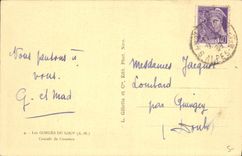 Nous pensons à
vous.
G. et Mad
Mesdames Jacquet
Lombard
par Quingey
(Doubs)
L. Gilletta et Cie, Edit. Phot. Nice
9 - Les GORGES DU LOUP (A.-M.)
Cascade de Courmes